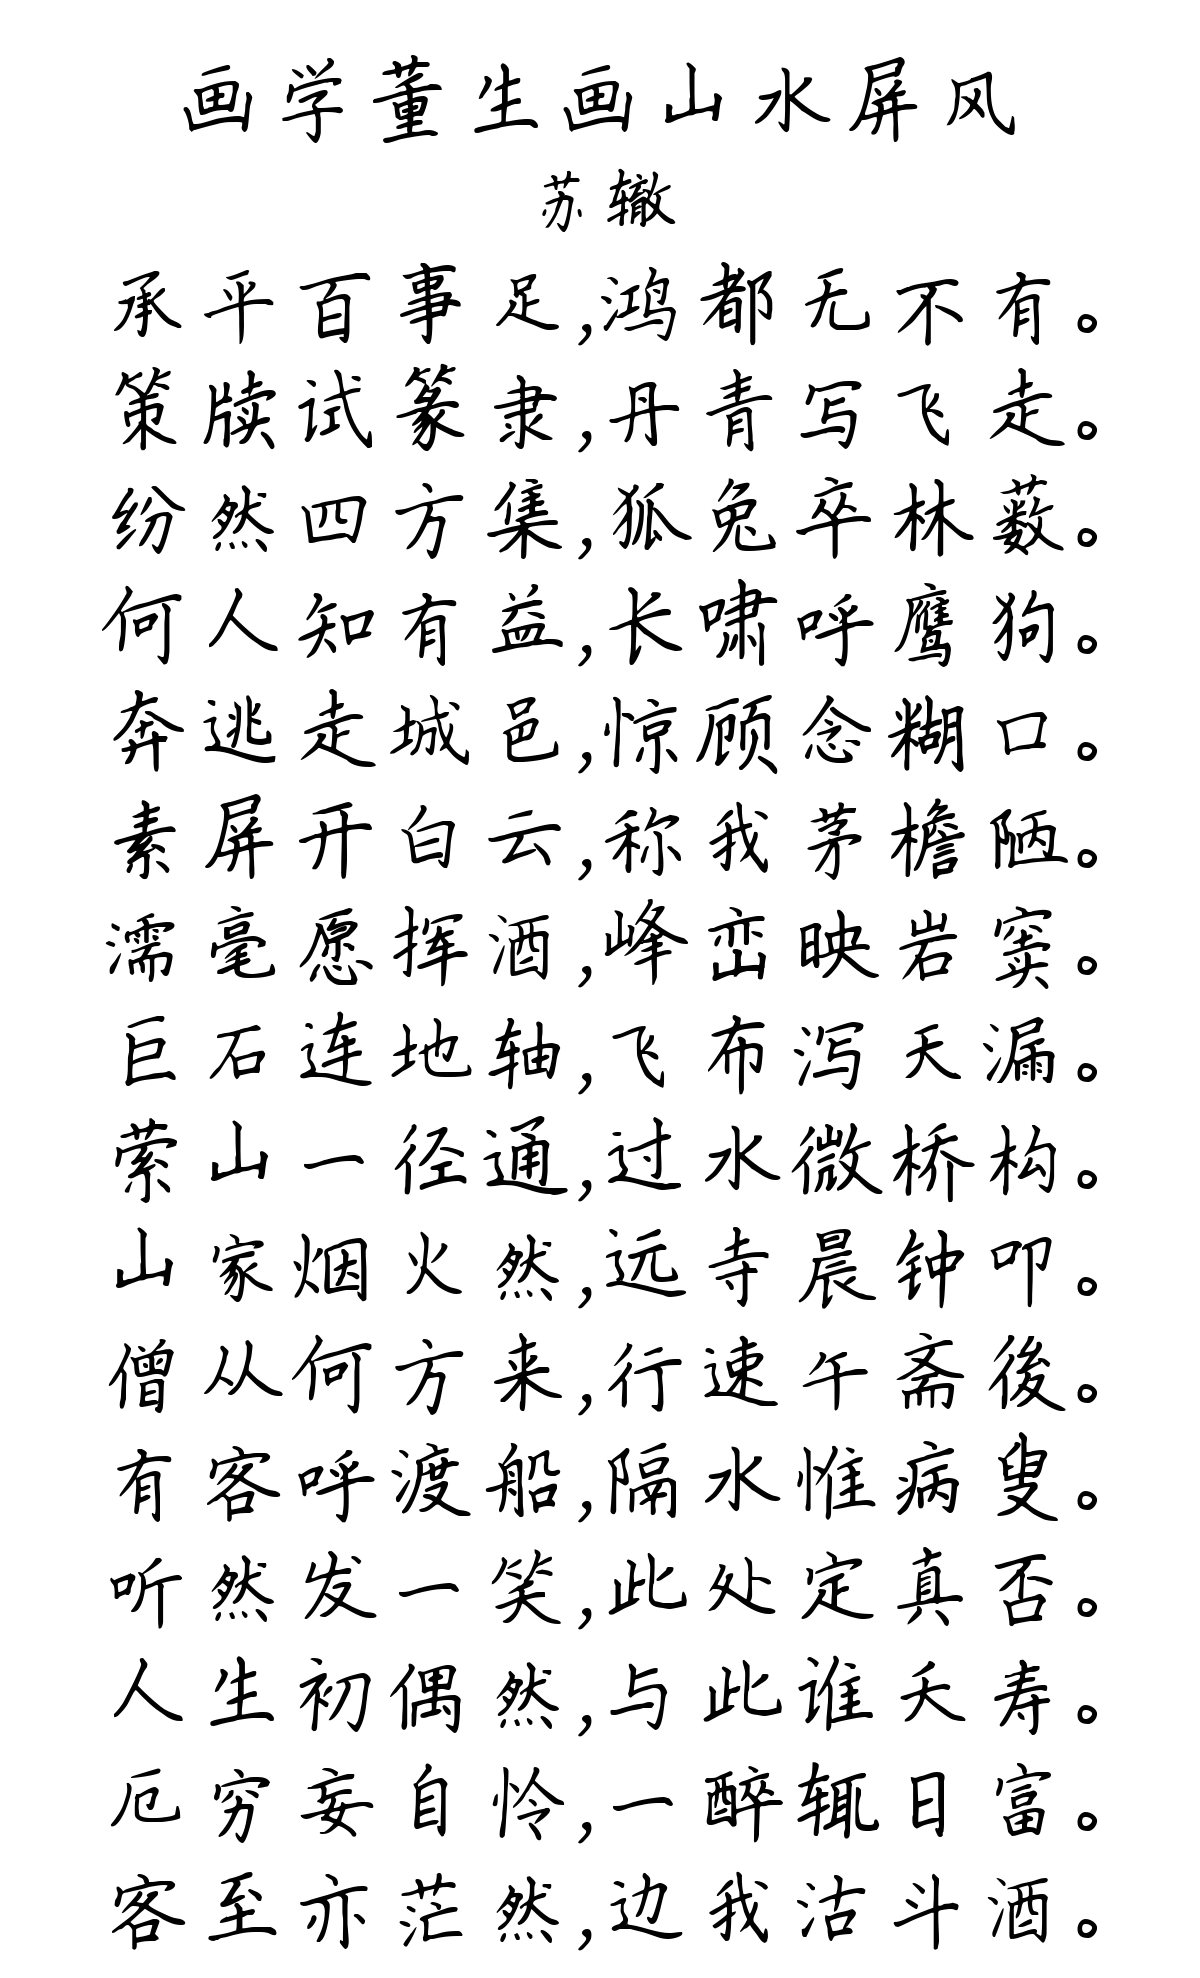 画学董生画山水屏风
苏辙
承平百事足,鸿都无不有。
策牍试篆隶,丹青写飞走。
纷然四方集,狐兔卒林薮。
何人知有益,长啸呼鹰狗。
奔逃走城邑,惊顾念糊口。
素屏开白云,称我茅檐陋。
濡毫愿挥酒,峰峦映岩窦。
巨石连地轴,飞布泻天漏。
萦山一径通,过水微桥构。
山家烟火然,远寺晨钟叩。
僧从何方来,行速午斋後。
有客呼渡船,隔水惟病叟。
听然发一笑,此处定真否。
人生初偶然,与此谁夭寿。
厄穷妄自怜,一醉辄日富。
客至亦茫然,边我沽斗酒。